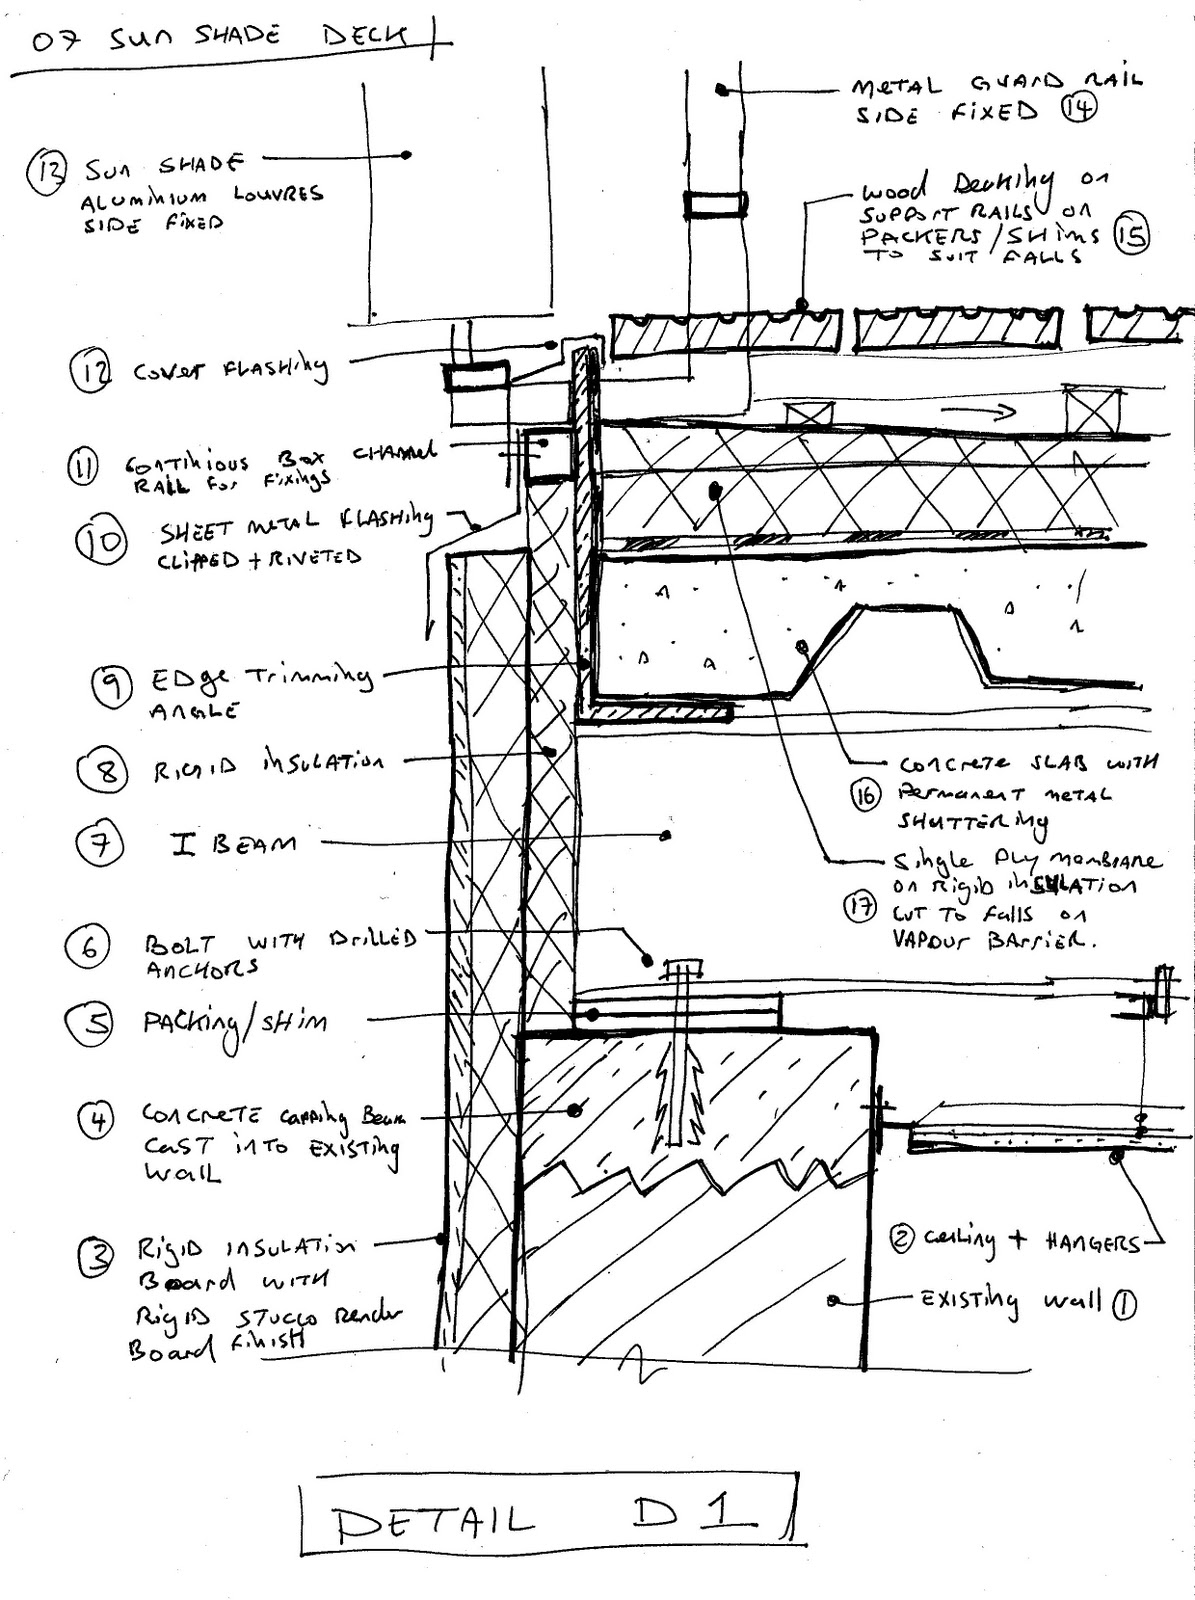 07 SUN SHADE DECK
13 SUN SHADE
ALUMINIUM LOUVRES
SIDE FIXED
METAL GUARD RAIL
SIDE FIXED 14
WOOD Decking on
SUPPORT RAILS on
PACKERS/SHIMS 15
TO SUIT FALLS
12 COVER FLASHING
11 CONTINIOUS BOX CHANNEL
RAIL For Fixings
10 SHEET METAL FLASHING
CLIPPED + RIVETED
9 EDge Trimming
ANGLE
8 RIGID INSULATION
7 I BEAM
CONCRETE SLAB WITH
16 Permanent METAL
SHUTTERING
Single Ply MEMBRANE
on Rigid INSULATION
17 CUT TO Falls on
VAPOUR BARRIER.
6 BOLT WITH DRILLED
ANCHORS
5 PACKING/SHIM
4 CONCRETE capping Beam
CAST into EXISTING
WALL
3 RIGID INSULATION
Board WITH
RIGID STUCCO Render
Board FINISH
2 Ceiling + HANGERS
EXISTING Wall 1
DETAIL D1